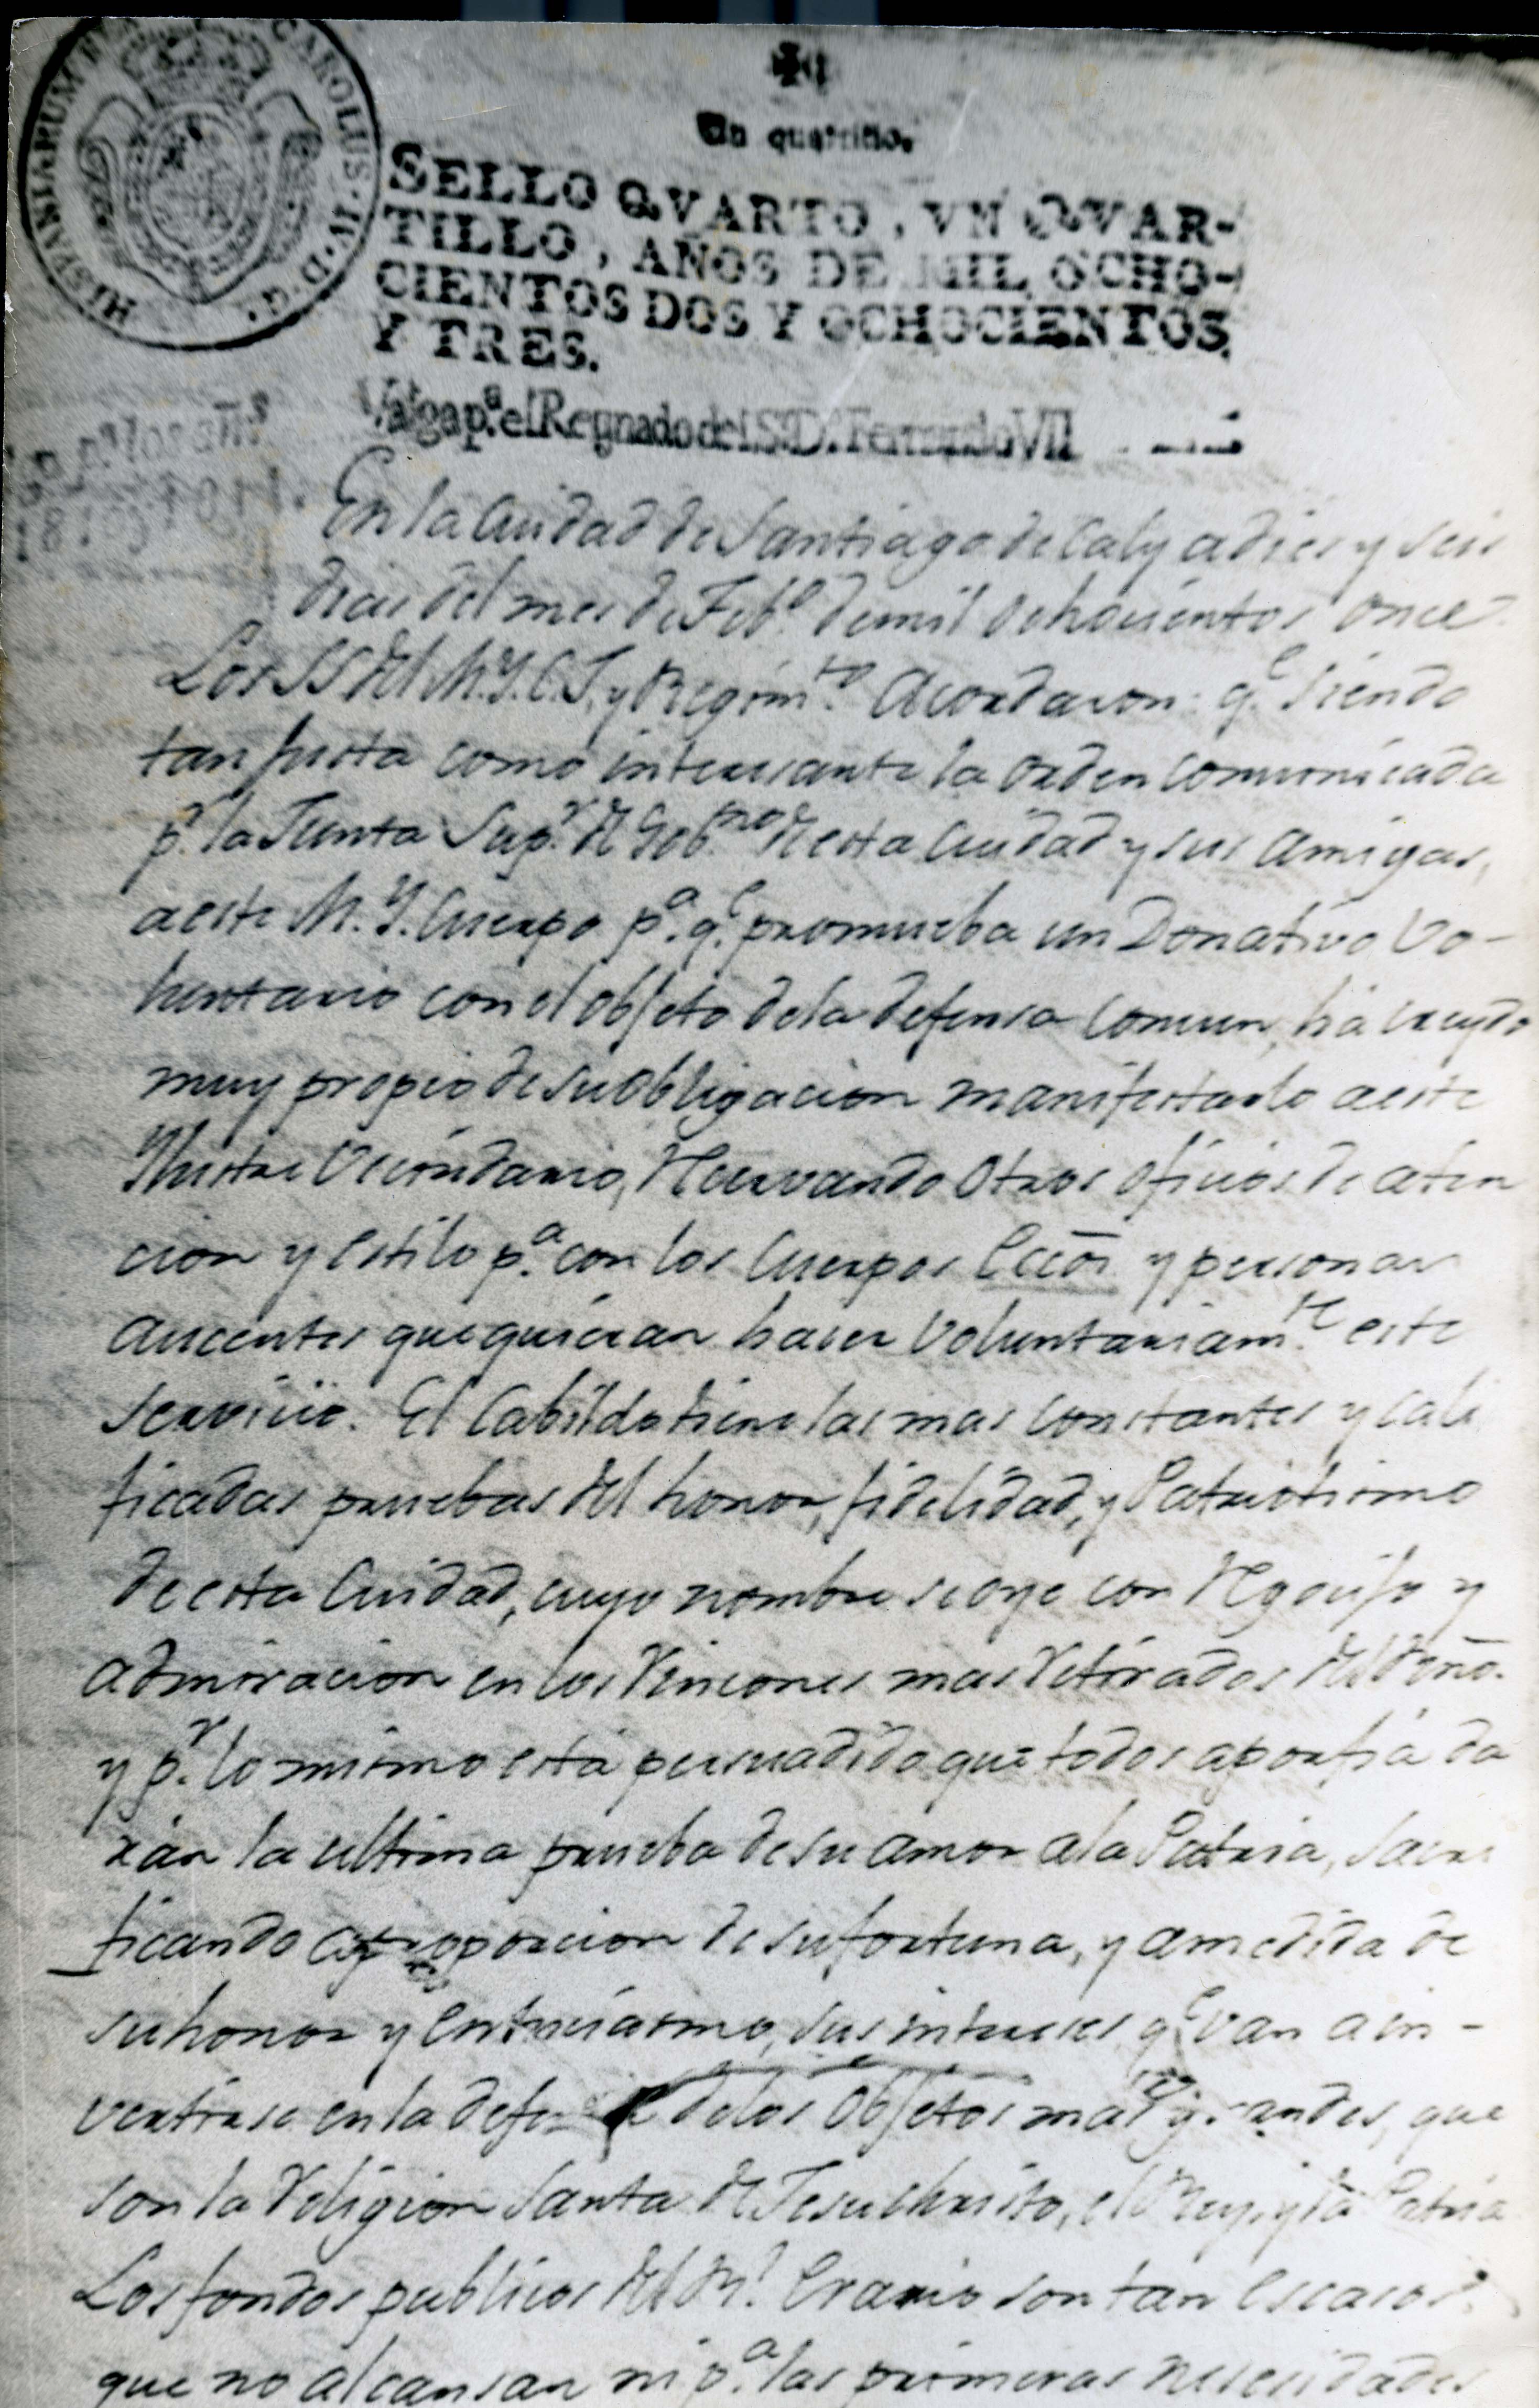 HISPANIARUM CAROLUS·IV·D·G·
Un quartillo.
SELLO QVARTO, VN QVAR-
TILLO, AÑOS DE MIL OCHO-
CIENTOS DOS Y OCHOCIENTOS
Y TRES.
Valga pª. el Reynado del S.D. Fernando VII
En la Ciudad de Santiago de Caly a dies y seis
dias del mes de Feb.º de mil ochocientos once
Los SS del M.Y.C.J. y Regim.to Acordaron: q.e siendo
tan justa como interesante la orden comunicada
p.r la Junta Sup.r de Gob.no de esta Ciudad y sus amigas,
a este M.Y. Cuerpo p.a q.e promueba un Donativo Vo-
luntario con el objeto de la defensa comun, há creydo
muy propio de su obligacion manifestarlo a este
Ylustre Vecindario, reservando otros oficios de aten
cion y estilo p.a con los Cuerpos Eccõs y personas
aucentes que quieran hacer voluntariam.te este
servicio. El Cabildo tiene las mas constantes y cali
ficadas pruebas del honor, fidelidad, y Patriotismo
de esta Ciudad, cuyo nombre se oye con regosijo y
admiracion en los rincones mas retirados del Reyno.
y p.r lo mismo está persuadido que todos a porfia da
rán la ultima prueba de su amor a la Patria, sacri
ficando a proporcion de su fortuna, y a medida de
su honor y entusiasmo, sus intereses q.e van a in-
vertirse en la defensa de los objetos mas grandes, que
son la Religion Santa de Jesuchristo, el Rey, y la Patria
Los fondos publicos del R.l Erario son tan escasos
que no alcansan ni p.a las primeras nesesidades